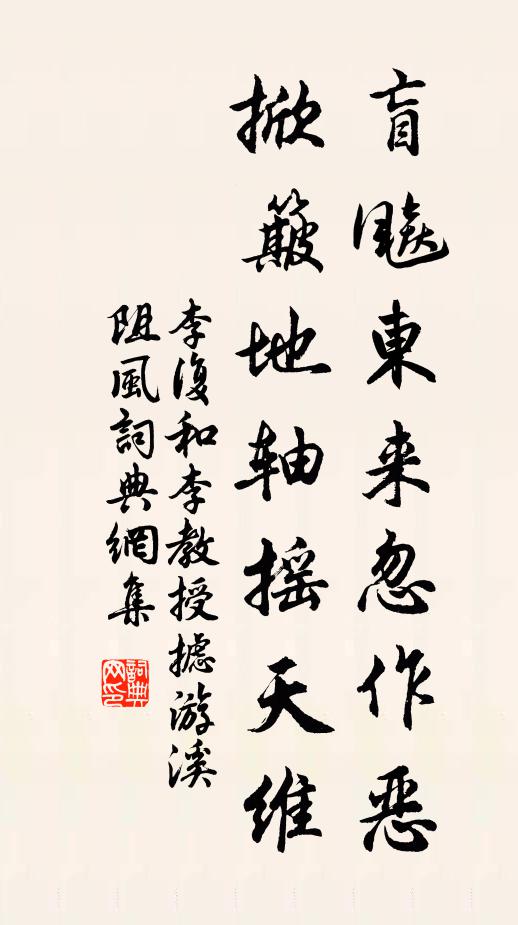 盲飈東来忽作恶
掀簸地轴摇天维
李復和李教授摅游溪
阻風詞典網集
詞典网印